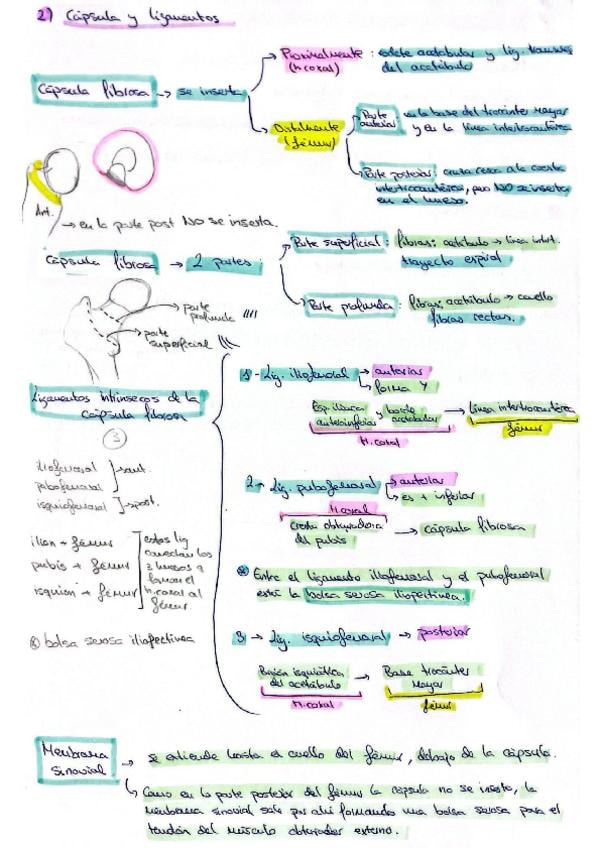 2) Cápsula y ligamentos
Proximalmente : rodete acetabular y lig. transverso
(h. coxal) del acetábulo
Cápsula fibrosa → se inserta
Distalmente
(fémur)
Parte anterior: en la base del trocánter Mayor
y en la línea intertrocantérea
Parte posterior: cruza cerca a la cresta
intertrocantérea, pero NO se inserta
en el hueso.
Ant.
→ en la parte post NO se inserta.
Cápsula fibrosa → 2 partes:
Parte superficial: fibras: acetábulo → línea intert.
trayecto espiral
Parte profunda: fibras: acetábulo → cuello
fibras rectas.
parte
profunda
parte
superficial
Ligamentos intrínsecos de la
cápsula fibrosa
3
iliofemoral
pubofemoral
ant.
isquiofemoral → post.
ilion + fémur
pubis + fémur
isquion + fémur
estos lig
conectan los
3 huesos q
forman el
h. coxal al
fémur
(*) bolsa serosa iliopectínea
1- Lig. iliofemoral → anterior
→ forma Y
Esp. ilíaca y borde → línea intertrocantérea
anteroinferior acetabular
H. coxal
fémur
2- Lig. pubofemoral → anterior
→ es + inferior
H. coxal
cresta obturadora → cápsula fibrosa
del pubis
(*) Entre el ligamento iliofemoral y el pubofemoral
está la bolsa serosa iliopectínea.
3 → Lig. isquiofemoral → posterior
Porción isquiática → Base trocánter
del acetábulo Mayor
H. coxal
fémur
Membrana
sinovial
→ se extiende hasta el cuello del fémur, debajo de la cápsula.
↳ Como en la parte posterior del fémur la cápsula no se inserta, la
membrana sinovial sale por ahí formando una bolsa serosa para el
tendón del músculo obturador externo.